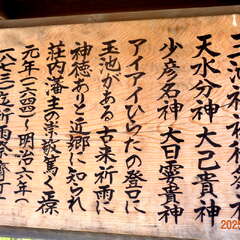 天水分神 大己貴神
少彦名神 大日霊貴神
アイアイひらたの登口に
玉池がある 古来祈雨に
神徳あり近郷に知られ
荘内藩主の崇敬篤く正保
元年(一六四四)〜明治六年(
一八七三)迄祈雨祭斎行